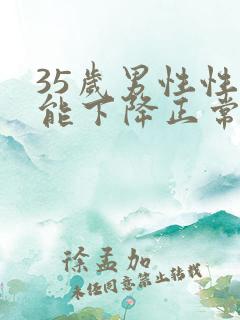 35歲男性性
能下降正常
徐孟加
未经同意禁止转载